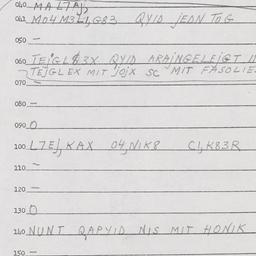 040 MA L7AJ,
041 MO4M3L1,G83 QYID JEDN TOG
050 —
060 TEJGL83X QYID ARAJNGELEJGT
TEJGLEX MIT JOJX SC MIT FASOLIE
070 —
080 —
090 O
100 L7EJ,KAX 04,N1K8 C1,K83R
110 —
120 —
130 O
140 NUNT QAPYID NIS MIT HONIK
150 —